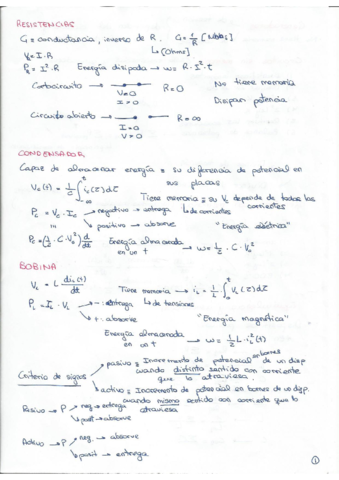 RESISTENCIAS
G = conductancia, inverso de R. G = 1/R [Mhos]
V_R = I · R ↳ [Ohms]
P_R = I² · R Energía disipada → w = R · I² · t
Cortocircuito V = 0 I > 0 R = 0 No tiene memoria
Disipan potencia
Circuito abierto I = 0 V > 0 R = ∞
CONDENSADOR
Capaz de almacenar energía = su diferencia de potencial en
sus placas
V_c(t) = 1/C ∫ i_c(τ) dτ
Tiene memoria = su V_c depende de todas las
corrientes
P_c = V_c · I_c → negativo → entrega ↳ de corrientes
→ positivo → absorve "Energía eléctrica"
P_c = (1/2 · C · V_c²) d/dt Energía almacenada en un t → w = 1/2 · C · V_c²
BOBINA
V_L = L di_L(t)/dt Tiene memoria → i_L = 1/L ∫ V_L(τ) dτ
P_L = I_L · V_L → - : entrega ↳ de tensiones
→ + : absorve "Energía magnética"
Energía almacenada en un t → w = 1/2 L · i_L²(t)
Criterio de signos → pasivo = Incremento de potencial en bornes de un disp.
cuando distinto sentido con corriente
que lo atraviesa
→ activo = Incremento de potencial en bornes de un disp.
cuando mismo sentido con corriente que lo
atraviesa
Pasivo → P → neg → entrega
→ posit → absorve
Activo → P → neg. → absorve
→ posit → entrega
1